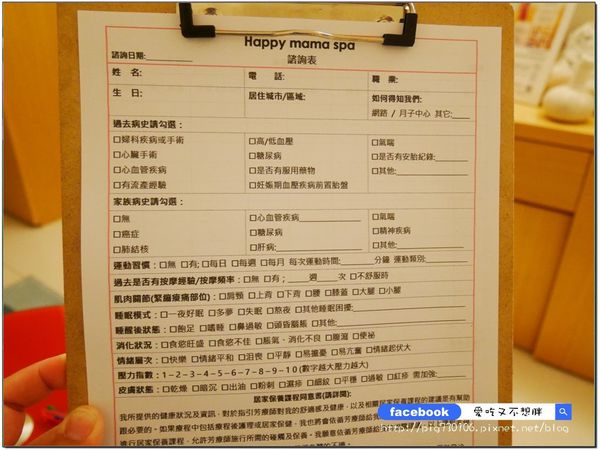 Happy mama spa
諮詢表
諮詢日期:
姓 名: 電 話: 職 業:
生 日: 居住城市/區域: 如何得知我們:
網路 / 月子中心 其它:
過去病史請勾選：
□婦科疾病或手術 □高/低血壓 □氣喘
□心臟手術 □糖尿病 □是否有安胎紀錄:
□心血管疾病 □是否有服用藥物 □其他:
□有流產經驗 □妊娠期血壓疾病前置胎盤
家族病史請勾選：
□無 □心血管疾病 □氣喘
□癌症 □糖尿病 □精神疾病
□肺結核 □肝病: □其他:
運動習慣：□無 □有;□每日 □每週 □每月 每次運動時間: 分鐘 運動類別:
過去是否有按摩經驗/按摩頻率：□無 □有； 週 次 □不舒服時
肌肉關節(緊繃痠痛部位)：□肩頸 □上背 □下背 □腰 □膝蓋 □大腿 □小腿
睡眠模式：□一夜好眠 □多夢 □失眠 □熬夜 □其他睡眠困擾:
睡醒後狀態：□飽足 □嗜睡 □鼻過敏 □頭昏腦脹 □其他:
消化狀況：□食慾旺盛 □食慾不佳 □脹氣、消化不良 □腹瀉 □便祕
情緒層次：□快樂 □情緒平和 □沮喪 □平靜 □易擔憂 □易亢奮 □情緒起伏大
壓力指數：1-2-3-4-5-6-7-8-9-10(數字越大壓力越大)
皮膚狀態：□乾燥 □暗沉 □出油 □粉刺 □濕疹 □細紋 □平穩 □過敏 □紅疹 需加強:
居家保養課程同意書(請詳閱):
我所提供的健康狀況及資訊，對於指引芳療師對我的舒適感及健康，以及相關居家保養課程的建議是有幫助
跟必要的。如果療程中包括療程後護理或居家保健，我也將會依循芳療師給我
進行居家保養課程，允許芳療師施行所需的碰觸及保養。我願意依循芳療師給
facebook 愛吃又不想胖
http://big730706.pixnet.net/blog